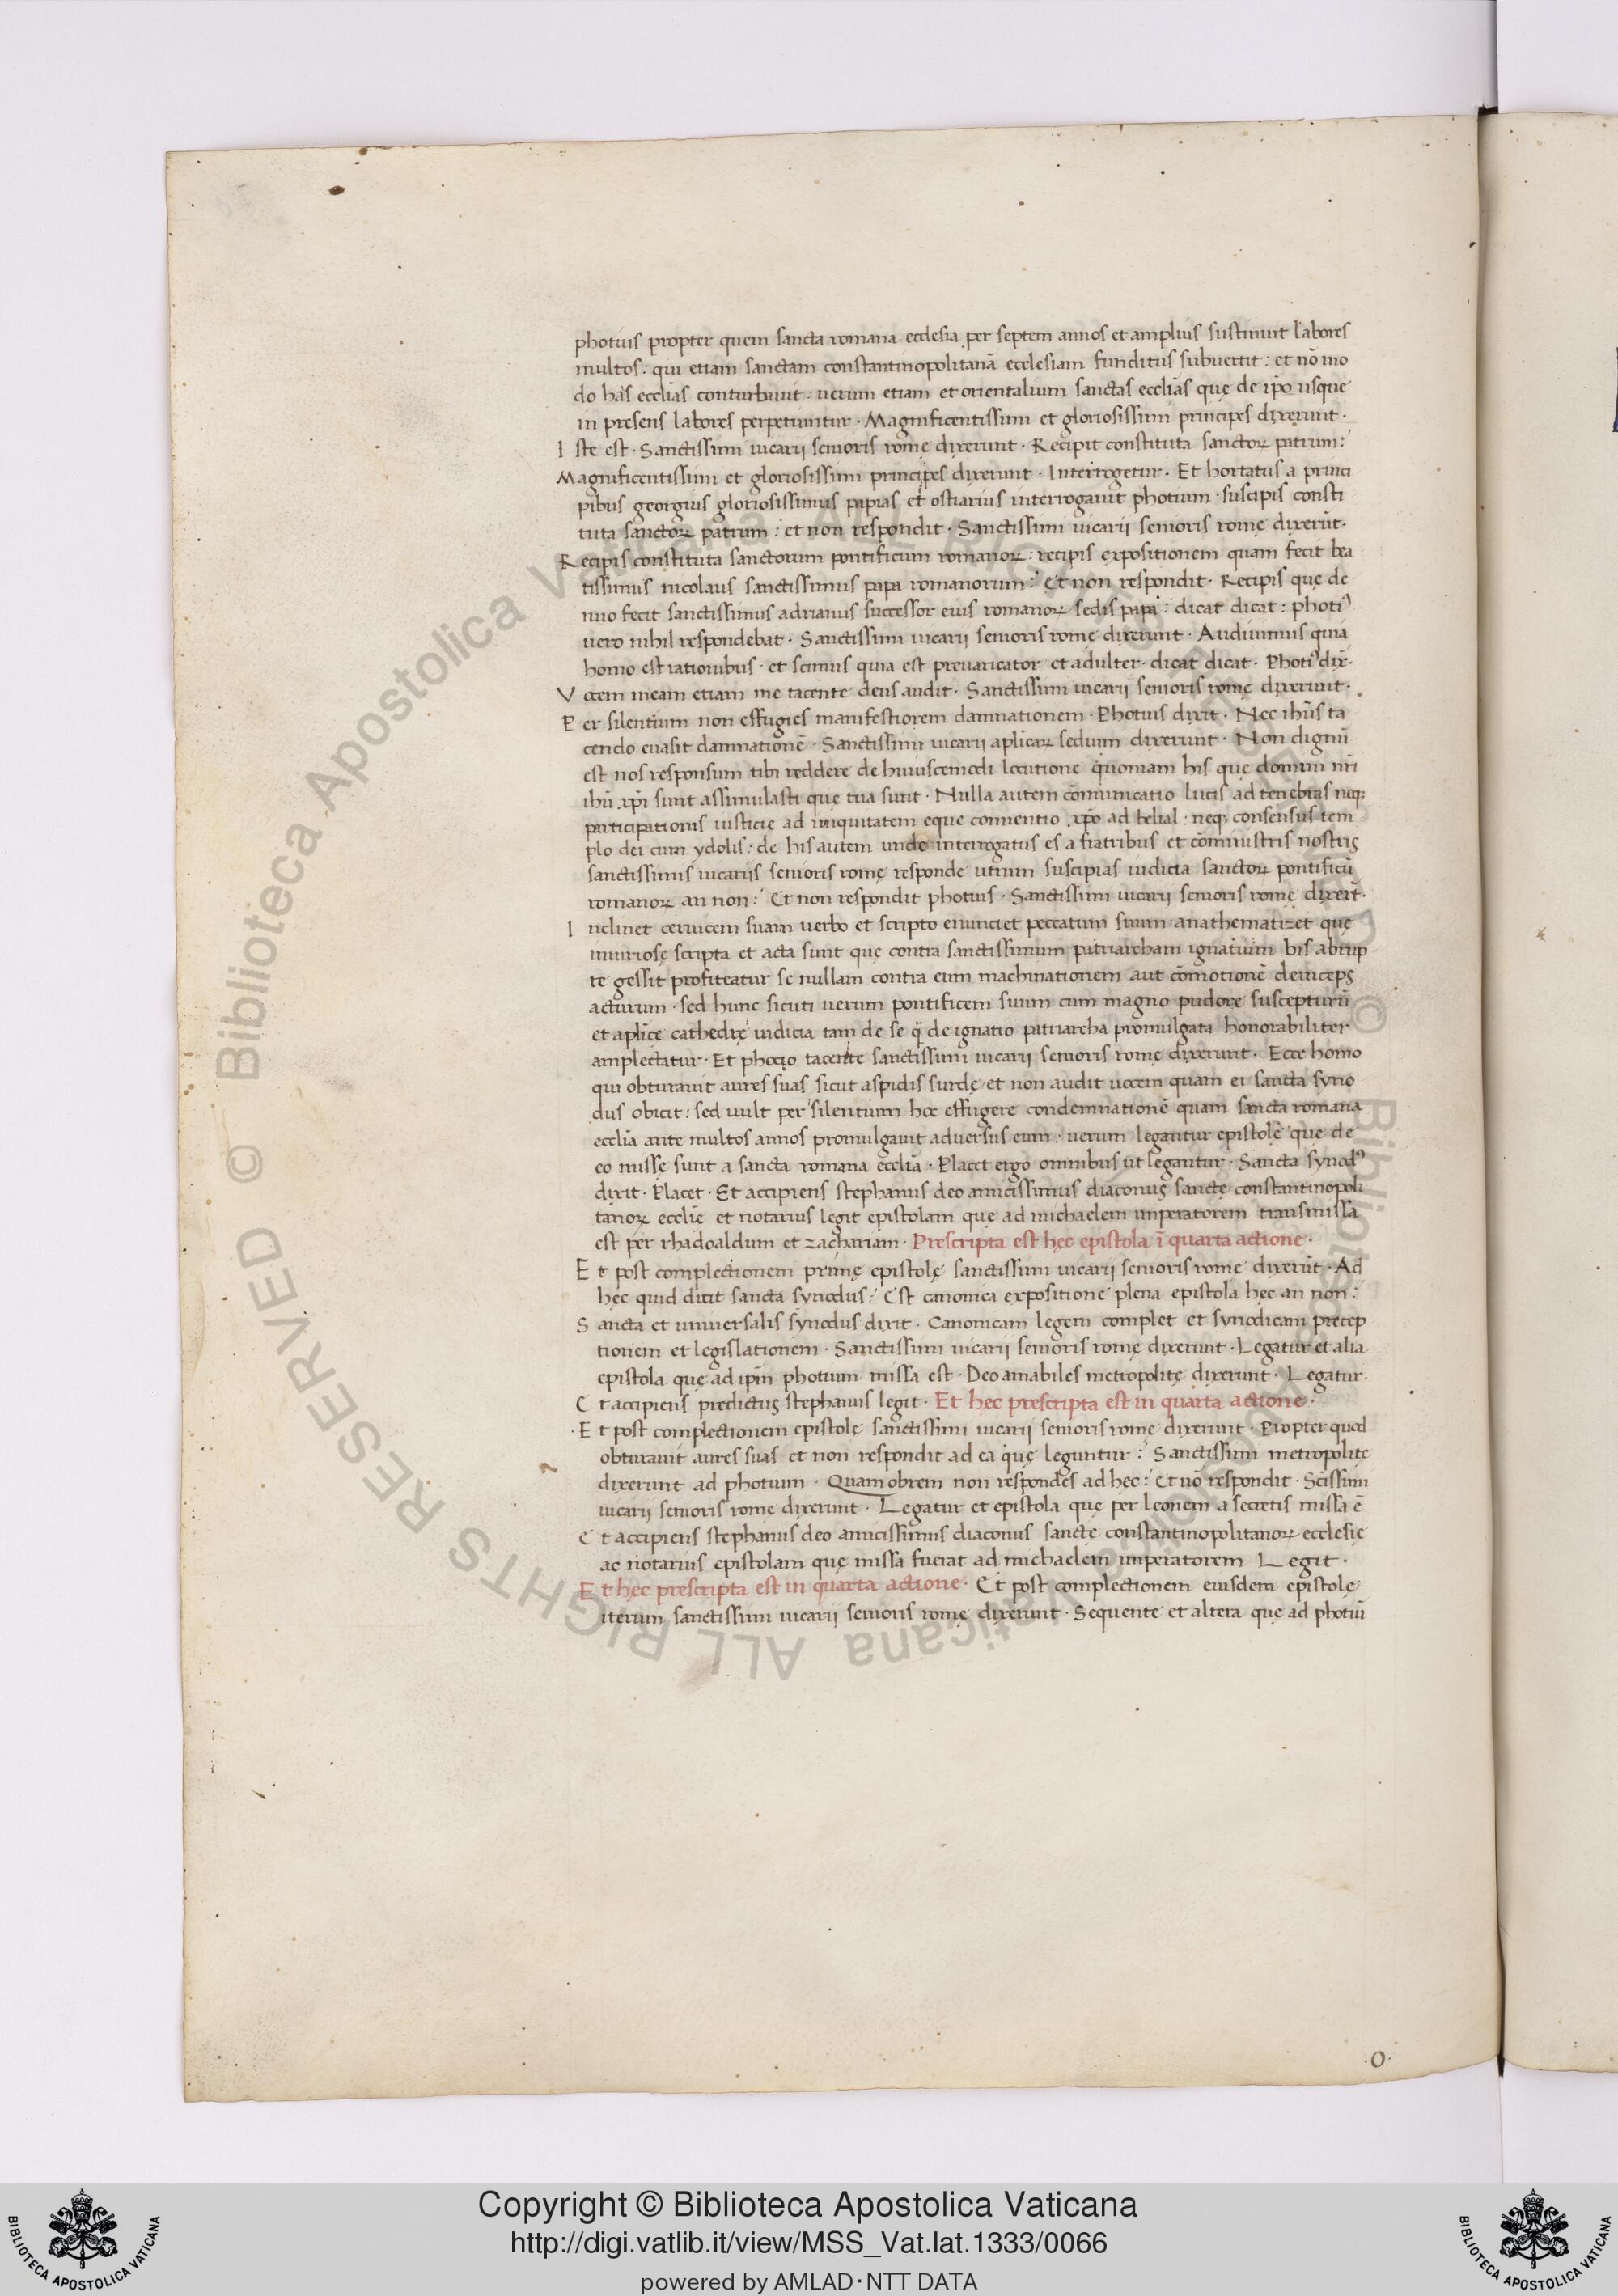 photius propter quem sancta romana ecclesia per septem annos et amplius sustinuit labores
multos: qui etiam sanctam constantinopolitanā ecclesiam funditus subuertit: et nō mo
do has eccl̄ias conturbauit: uerum etiam et orientalium sanctas eccl̄ias quę de ip̄o usque
in presens labores perpetiuntur · Magnificentissimi et gloriosissimi principes dixerunt ·
Iste est · Sanctissimi uicarij senioris romę dixerunt · Recipit constituta sanctoꝝ patrum:
Magnificentissimi et gloriosissimi principes dixerunt · Interrogetur · Et hortatus a princi
pibus georgius gloriosissimus papias et ostiarius interrogauit photium · suscipis consti
tuta sanctoꝝ patrum: et non respondit · Sanctissimi uicarii senioris romę dixerūt ·
Recipis constituta sanctorum pontificum romanoꝝ: recipis expositionem quam fecit bea
tissimus nicolaus sanctissimus papa romanorum: Et non respondit · Recipis que de
nuo fecit sanctissimus adrianus successor eius romanoꝝ sedis papa: dicat dicat: photiꝰ
uero nihil respondebat · Sanctissimi uicarij senioris rome dixerunt · Audiuimus quia
homo est rationibus · et scimus quia est preuaricator et adulter · dicat dicat · Photiꝰ dix̄ ·
Vocem meam etiam me tacente deus audit · Sanctissimi uicarij senioris romę dixerunt ·
Per silentium non effugies manifestiorem damnationem · Photius dixit · Nec ih̄us ta
cendo euasit damnationē · Sanctissimi uicarii aplicaꝝ sedium dixerunt · Non dignū
est nos responsum tibi reddere de huiuscemodi locutione quoniam his quę domini nr̄i
ih̄u xp̄i sunt assimulasti que tua sunt · Nulla autem cōmunicatio lucis ad tenebras neqꝫ
participationis iusticię ad iniquitatem eque conuentio xp̄o ad belial: neqꝫ consensus tem
plo dei cum ydolis: de his autem unde interrogatus es a fratribus et cōministris nostris
sanctissimis uicariis senioris romę responde utrum suscipias iudicia sanctoꝝ pontificū
romanoꝝ an non: Et non respondit photius · Sanctissimi uicarij senioris romę dixert̄ ·
Inclinet ceruicem suam uerbo et scripto enunciet peccatum suum anathematizet quę
iniuriosę scripta et acta sunt quę contra sanctissimum patriarcham ignatium bis abrup
te gessit profiteatur se nullam contra eum machinationem aut cōmotionē deinceps
acturum · sed hunc sicuti uerum pontificem suum cum magno pudore suscepturū
et aplice cathedrę iudicia tam de se q̄ de ignatio patriarcha promulgata honorabiliter
amplectatur · Et photio tacente sanctissimi uicarij senioris romę dixerunt · Ecce homo
qui obturauit aures suas sicut aspidis surdę et non audit uocem quam ei sancta syno
dus obicit: sed uult per silentium hoc effugere condemnationē quam sancta romana
eccl̄ia ante multos annos promulgauit aduersus eum: uerum legantur epistolę quę de
eo missę sunt a sancta romana eccl̄ia · Placet ergo omnibus ut legantur · Sancta synodꝰ
dixit · Placet · Et accipiens stephanus deo amicissimus diaconus sanctę constantinopoli
tanoꝝ eccl̄ie et notarius legit epistolam quę ad michaelem imperatorem transmissa
est per rhadoaldum et zachariam · Prescripta est hęc epistola ī quarta actione ·
Et post complectionem primę epistolę sanctissimi uicarii senioris rome dixerūt · Ad
hęc quid dicit sancta synodus: Est canonica expositione plena epistola hęc an non:
Sancta et uniuersalis synodus dixit · Canonicam legem complet et synodicam precep
tionem et legislationem · Sanctissimi uicarij senioris romę dixerunt · Legatur et alia
epistola quę ad ip̄m photium missa est · Deo amabiles metropolitę dixerunt · Legatur ·
Et accipiens predictus stephanus legit · Et hec prescripta est in quarta actione ·
Et post complectionem epistolę sanctissimi uicarii senioris romę dixerunt · Propter quod
obturauit aures suas et non respondit ad ea quę leguntur: Sanctissimi metropolite
dixerunt ad photium · Quam obrem non respondes ad hęc: Et nō respondit · Sc̄issimi
uicarij senioris rome dixerunt · Legatur et epistola quę per leonem a secretis missa ē
Et accipiens stephanus deo amicissimus diaconus sanctę constantinopolitanoꝝ ecclesię
ac notarius epistolam quę missa fuerat ad michaelem imperatorem Legit ·
Et hęc prescripta est in quarta actione · Et post complectionem eiusdem epistolę
iterum sanctissimi uicarij senioris romę dixerunt · Sequente et altera quę ad photiū
·O·
© Biblioteca Apostolica Vaticana ALL RIGHTS RESERVED
Copyright © Biblioteca Apostolica Vaticana
http://digi.vatlib.it/view/MSS_Vat.lat.1333/0066
powered by AMLAD·NTT DATA
BIBLIOTECA APOSTOLICA VATICANA
BIBLIOTECA APOSTOLICA VATICANA